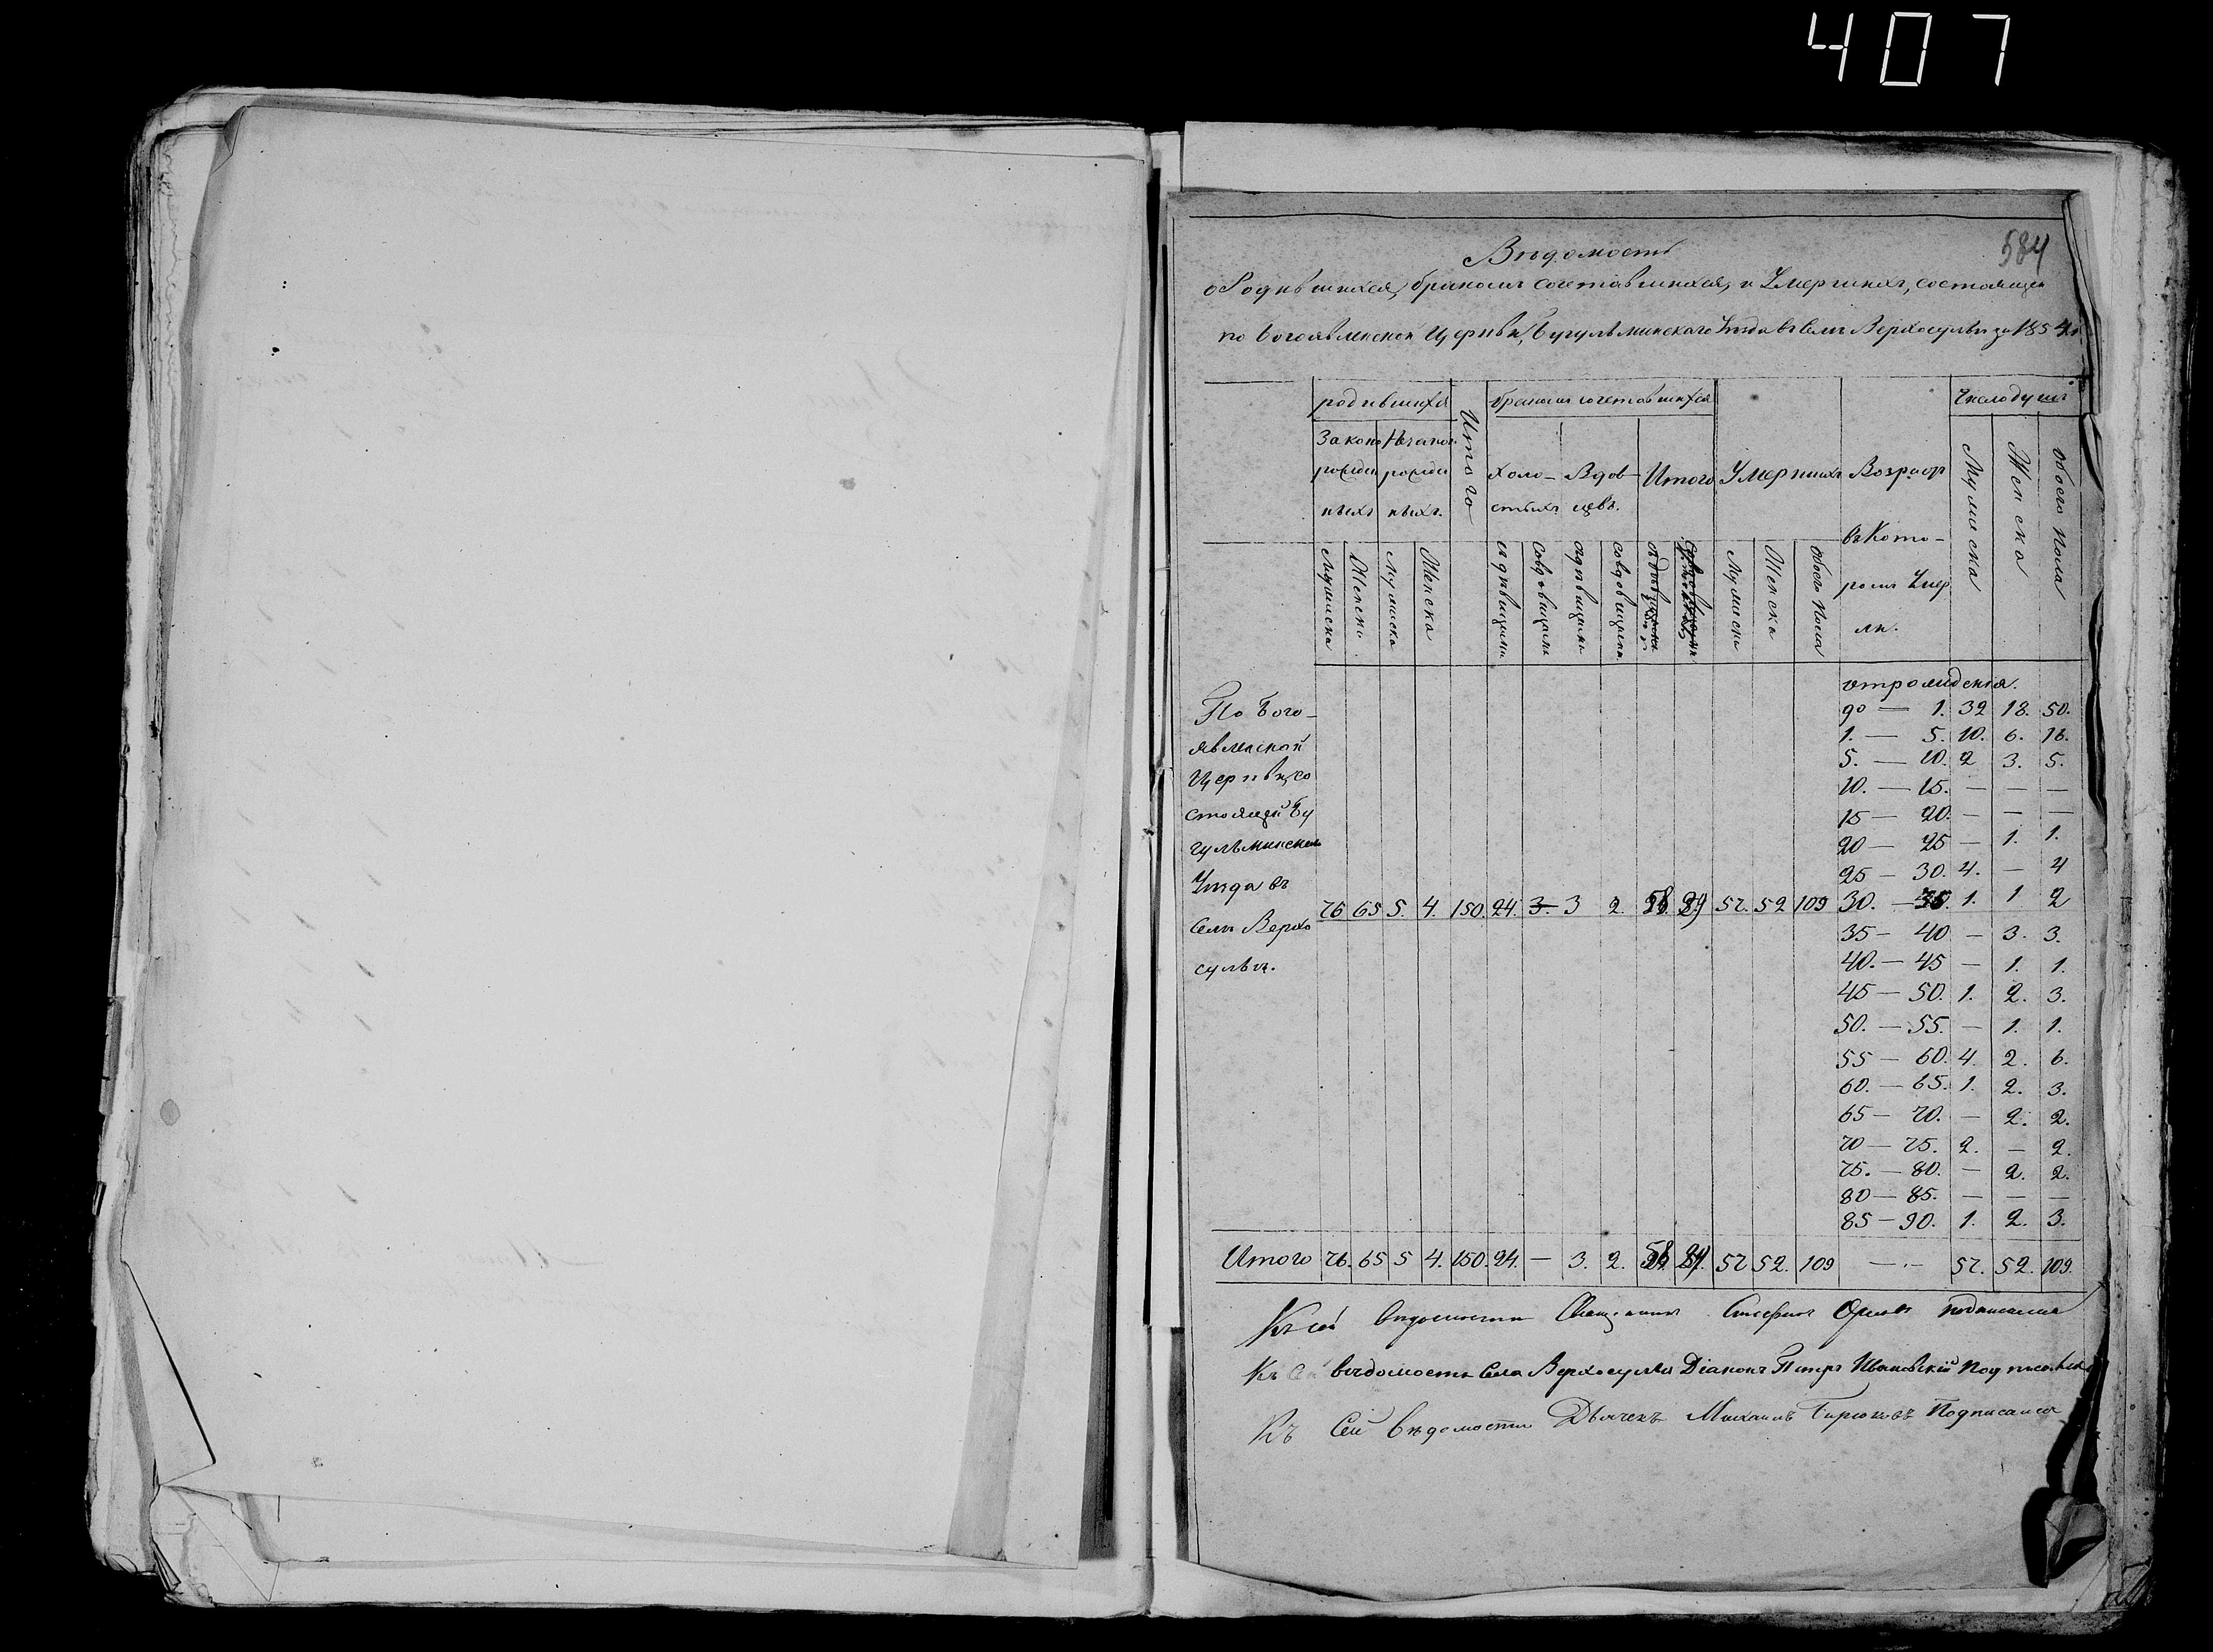 407
584
Вѣдомость
о Родившихся, бракомъ сочетавшихся, и Умершихъ, состоящей
по Богоявленской Церкви, Бугульминскаго Уѣзда въ Селѣ Верхосульѣ за 1854
родившихся
Итого
бракомъ сочетавшихся
Умершихъ
Возраст
въ Кото-
ромъ Умер
ли.
Число душъ
Законо рожден ныхъ
Незакон рожден ныхъ.
Холо- стыхъ
Вдов- цевъ.
Итого
Мужеска
Женска
Мужеска
Женска
съ дѣвицами
со вдовицами
съ дѣвицами
со вдовицами
Мужеска
Женска
Обоего Пола
Мужеска
Женска
Обоего Пола
По Бого-
явленской
Церкви, со
стоящей Бу
гульминскаго
Уѣзда въ
Селѣ Верхо
сульѣ.
76 65 5. 4. 150. 24. 3. 3 2. 58 29 57. 52 109
от рождения.
до — 1. 32 18. 50.
1. — 5. 10. 6. 16.
5. — 10. 2 3. 5.
10. — 15. — — —
15 — 20. — — —
20 — 25 — 1. 1.
25 — 30. 4. — 4
30. — 35. 1. 1 2
35 — 40 — 3. 3.
40. — 45 — 1. 1.
45 — 50. 1. 2. 3.
50. — 55. — 1. 1.
55 — 60. 4. 2. 6.
60. — 65. 1. 2. 3.
65 — 70. — 2. 2.
70 — 75. 2. — 2.
75. — 80. — 2. 2.
80 — 85. — — —
85 — 90. 1. 2. 3.
Итого 76. 65 5 4. 150. 24. — 3. 2. 58 29. 57 52. 109 — · — 57. 52. 109.
Къ сей вѣдомости Священникъ Орловъ подписался
Къ Сей вѣдомости Села Верхосулья Діаконъ Петръ Ивановскій Подписался
Къ Сей Вѣдомости Дьячекъ Михаилъ Бирюковъ Подписался